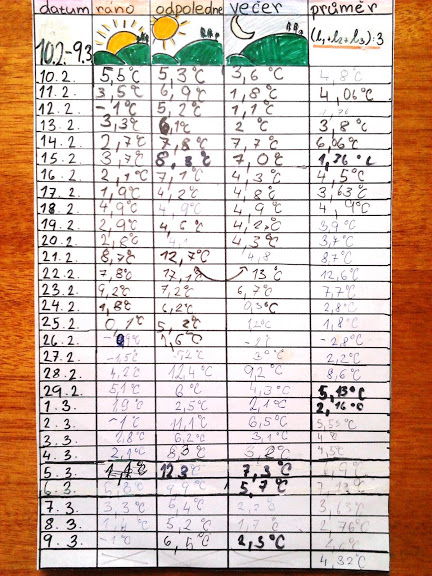 datum ráno odpoledne večer průměr
10.2.-9.3. (t₁+t₂+t₃):3
10.2. 5,5°C 5,3°C 3,6°C 4,8°C
11.2. 3,5°C 6,9°C 1,8°C 4,06°C
12.2. -1°C 5,2°C 1,1°C
13.2. 3,3°C 6,1°C 2°C 3,8°C
14.2. 2,7°C 7,8°C 7,7°C 6,06°C
15.2. 3,7°C 8,3°C 7,0°C
16.2. 2,1°C 7,1°C 4,3°C 4,5°C
17.2. 1,9°C 4,2°C 4,8°C 3,63°C
18.2. 4,9°C 4,9°C 4,9°C 4,9°C
19.2. 2,9°C 4,6°C 4,2°C 3,9°C
20.2. 2,6°C 4,1 4,3°C 3,7°C
21.2. 8,7°C 12,7°C 4,8 8,7°C
22.2. 7,8°C 17,1°C 13°C 12,6°C
23.2. 9,2°C 7,2°C 6,7°C 7,7°C
24.2. 1,8°C 6,2°C 2,8°C
25.2. 0,1°C 5,2°C 1,8°C
26.2. 1,6°C -2,8°C
27.2. 2,2°C
28.2. 4,2°C 12,4°C 9,2°C 8,6°C
29.2. 5,1°C 6°C 4,3°C 5,13°C
1.3. 1,9°C 2,5°C 2,1°C 2,16°C
2.3. -1°C 11,1°C 6,5°C 5,53°C
3.3. 2,8°C 6,2°C 3,1°C 4°C
4.3. 2,1°C 8,3°C 3,2°C 4,5°C
5.3. 12,3°C 7,3°C 6,9°C
6.3. 5,7°C
7.3. 3,3°C 6,4°C 2,2°C
8.3. 1,4°C 5,2°C 1,7°C 2,76°C
9.3. -1°C 6,5°C 2,3°C
4,32°C